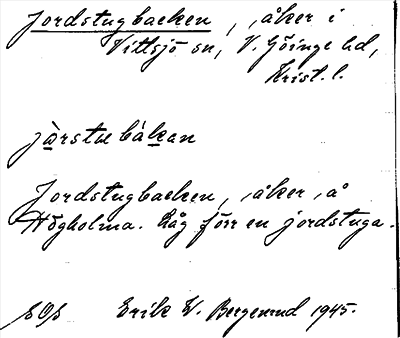 Jordstugbacken, åker i
Vittsjö sn, V. Göinge hd,
Krist. l.
Jordstugbacken, åker, å
Högholma. Låg förr en jordstuga.
Erik W. Bergenrud 1945.